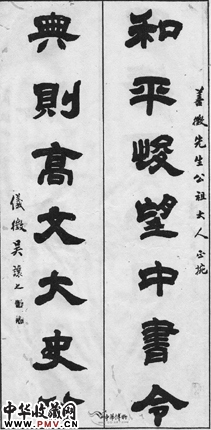 善徵先生公祖大人正
和平峻望中書令
典則高文大史
儀徵吳讓之
中华收藏网
WWW.PMV.CN